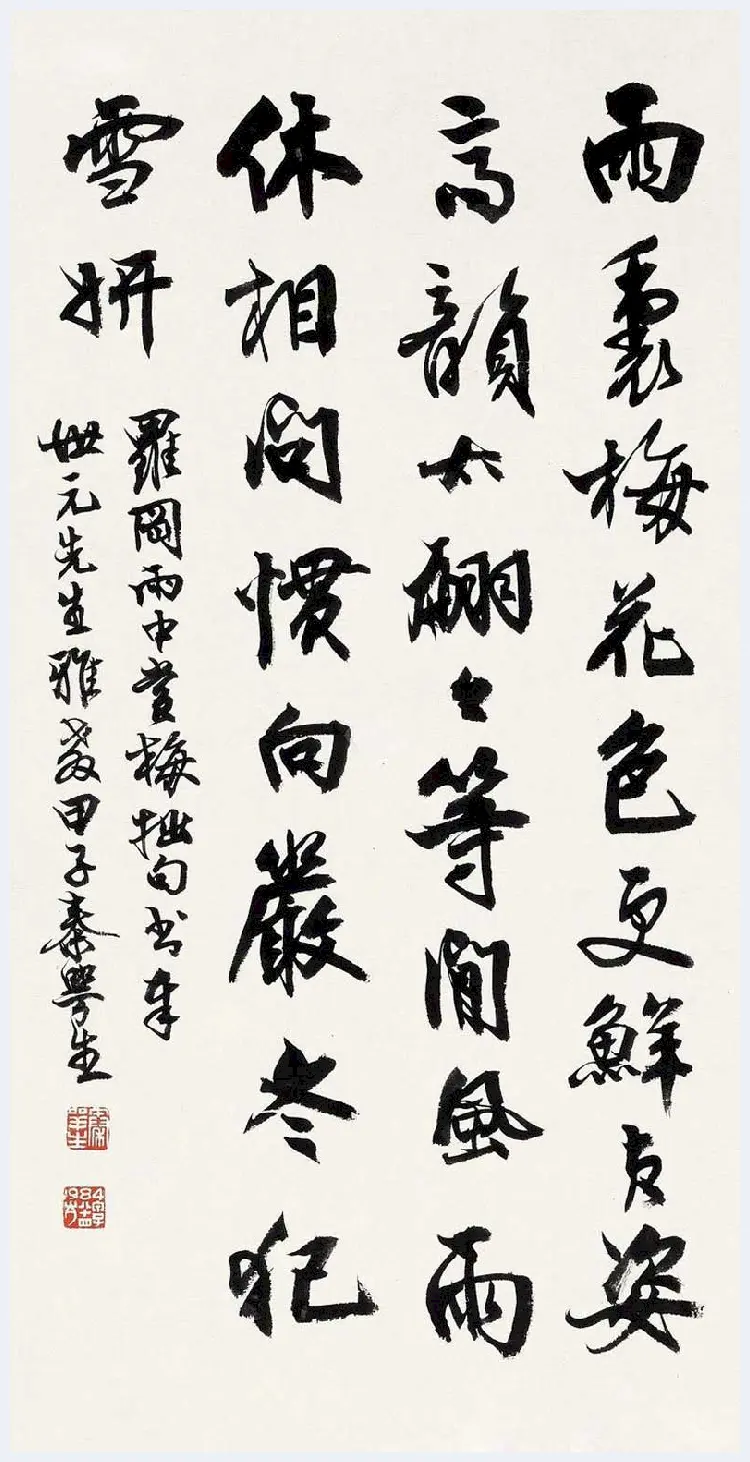 雨裏梅花色更鮮貞姿
高韻太翩々等閒風雨
休相問慣向嚴冬犯
雪妍
羅岡雨中賞梅拙句书奉
世元先生雅教甲子秦咢生
秦咢生